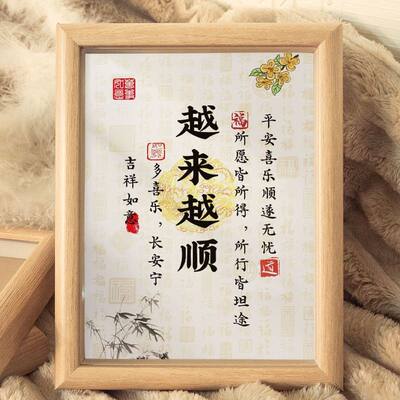 平安喜乐顺遂无忧
福
所愿皆所得，所行皆坦途
越来越顺
多喜乐，长安宁
吉祥如意